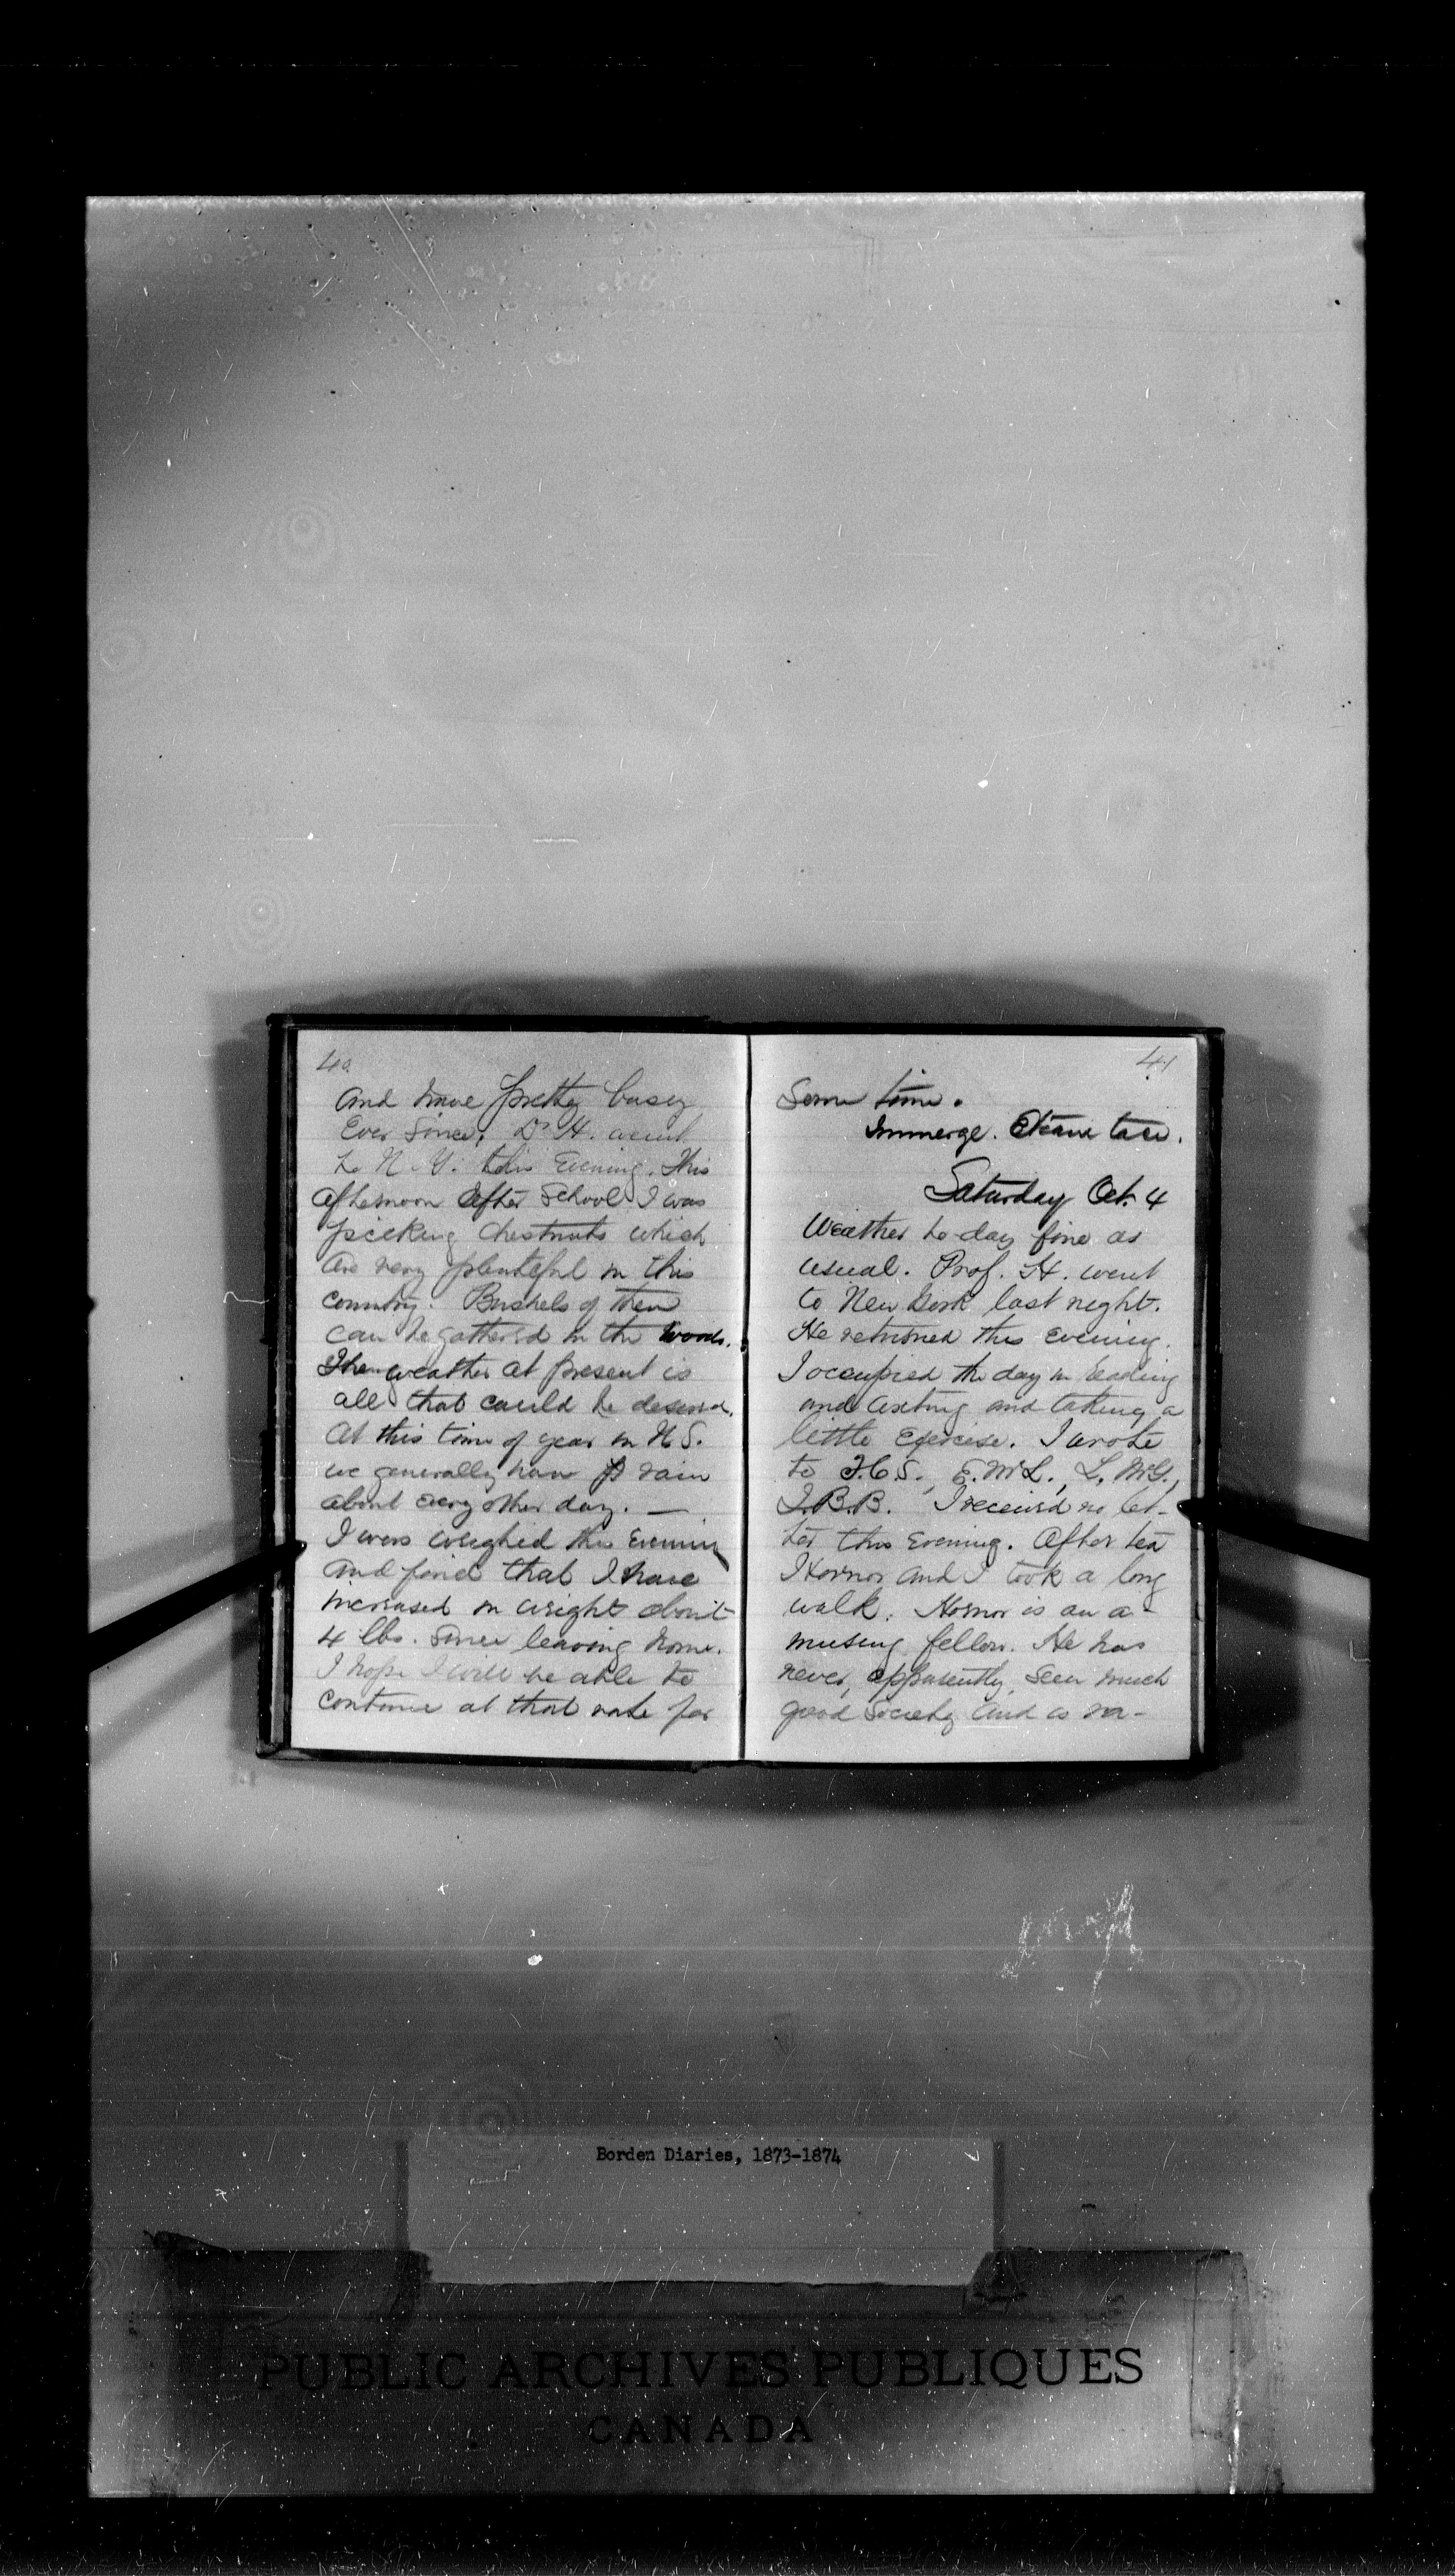 40
and have pretty busy
ever since. Dr H. went
to N.Y. this evening. This
afternoon after school I was
picking chestnuts which
are very plentiful in this
country. Bushels of them
can be gathered in the woods.
The weather at present is
all that could be desired.
At this time of year in N.S.
we generally have rain
about every other day. —
I was weighed this evening
and find that I have
increased in weight about
4 lbs. since leaving home.
I hope I will be able to
continue at that rate for
41
some time.
Immerge.
Saturday Oct. 4
Weather to-day fine as
usual. Prof. H. went
to New York last night.
He returned this evening.
I occupied the day in reading
and writing and taking a
little exercise. I wrote
to E. McL., L. McG.,
J.B.B. I received no let-
ter this evening. After tea
Hornor and I took a long
walk. Hornor is an a-
musing fellow. He has
never, apparently, seen much
good society and is
Borden Diaries, 1873-1874
PUBLIC ARCHIVES PUBLIQUES
CANADA